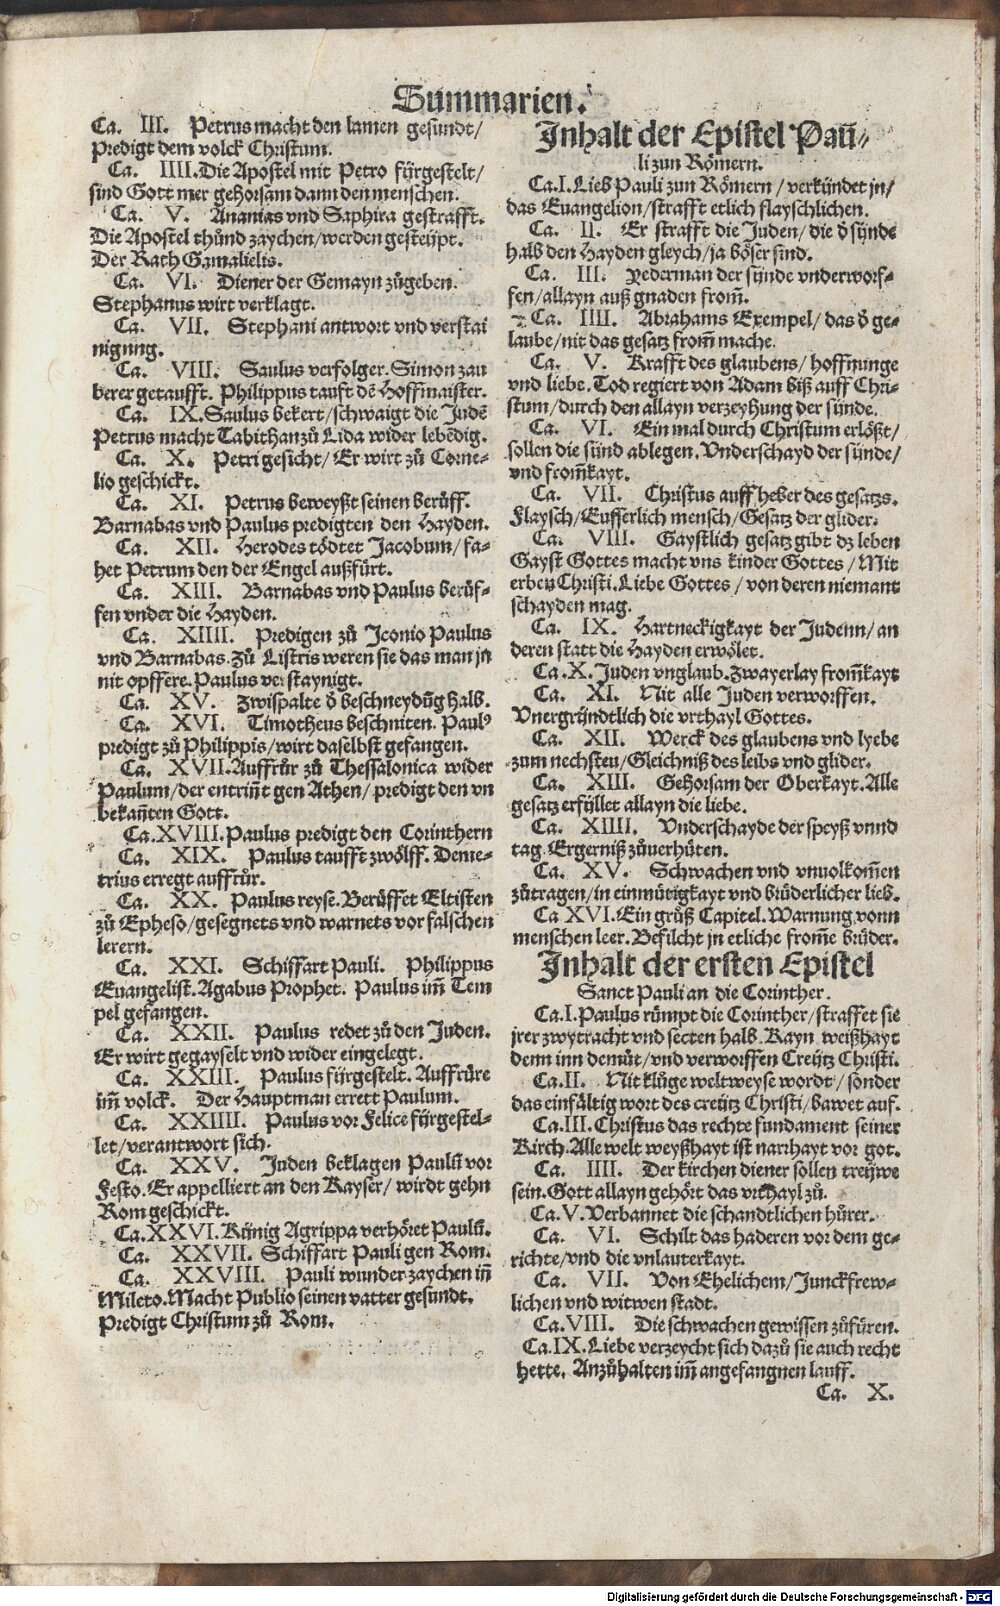 Summarien.
Ca. III. Petrus macht den lamen gesundt/
Predigt dem volck Christum.
Ca. IIII. Die Apostel mit Petro fürgestelt/
sind Gott mer gehorsam dann den menschen.
Ca. V. Ananias vnd Saphira gestrafft.
Die Apostel thůnd zaychen/werden gesteüpt.
Der Rath Gamalielis.
Ca. VI. Diener der Gemayn zůgeben.
Stephanus wirt verklagt.
Ca. VII. Stephani antwort vnd verstai
nigung.
Ca. VIII. Saulus verfolger. Simon zau
berer getaufft. Philippus tauft dẽ Hoffmaister.
Ca. IX. Saulus bekert/schwaigt die Judẽ
Petrus macht Tabithan zů Lida wider lebẽdig.
Ca. X. Petri gesicht/ Er wirt zů Corne-
lio geschickt.
Ca. XI. Petrus beweyßt seinen berůff.
Barnabas vnd Paulus predigten den Hayden.
Ca. XII. Herodes tödtet Jacobum/fa-
het Petrum den der Engel außfürt.
Ca. XIII. Barnabas vnd Paulus berůf-
fen vnder die Hayden.
Ca. XIIII. Predigen zů Iconio Paulus
vnd Barnabas. Zů Listris weren sie das man jn
nit opffere. Paulus verstaynigt.
Ca. XV. Zwispalte ð beschneydũg halb.
Ca. XVI. Timotheus beschniten. Paulꝰ
predigt zů Philippis/wirt daselbst gefangen.
Ca. XVII. Auffrůr zů Thessalonica wider
Paulum/der entriñt gen Athen/predigt den vn
bekañten Gott.
Ca. XVIII. Paulus predigt den Corinthern
Ca. XIX. Paulus taufft zwölff. Deme-
trius erregt auffrůr.
Ca. XX. Paulus reyse. Berůffet Eltisten
zů Epheso/gesegnets vnd warnets vor falschen
lerern.
Ca. XXI. Schiffart Pauli. Philippus
Euangelist. Agabus Prophet. Paulus im̃ Tem
pel gefangen.
Ca. XXII. Paulus redet zů den Juden.
Er wirt gegayselt vnd wider eingelegt.
Ca. XXIII. Paulus fürgestelt. Auffrůre
im̃ volck. Der Hauptman errett Paulum.
Ca. XXIIII. Paulus vor Felice fürgestel-
let/verantwort sich.
Ca. XXV. Juden beklagen Paulũ vor
Festo. Er appelliert an den Kayser/ wirdt gehn
Rom geschickt.
Ca. XXVI. Künig Agrippa verhöret Paulũ.
Ca. XXVII. Schiffart Pauli gen Rom.
Ca. XXVIII. Pauli wunderzaychen iñ
Mileto. Macht Publio seinen vatter gesundt.
Predigt Christum zů Rom.
Inhalt der Epistel Pau-
li zun Römern.
Ca. I. Lieb Pauli zun Römern/verkündet jn/
das Euangelion/strafft etlich flayschlichen.
Ca. II. Er strafft die Juden/die ð sünde
halb den Hayden gleych/ja böser sind.
Ca. III. Yederman der sünde vnderworf-
fen/allayn auß gnaden from̃.
Ca. IIII. Abrahams Exempel/das ð ge-
laube/nit das gesatz from̃ mache.
Ca. V. Krafft des glaubens/ hoffnunge
vnd liebe. Tod regiert von Adam biß auff Chri-
stum/durch den allayn verzeyhung der sünde.
Ca. VI. Ein mal durch Christum erlößt/
sollen die sünd ablegen. Vnderschayd der sünde/
vnd from̃kayt.
Ca. VII. Christus auffheber des gesatzs.
Flaysch/Eusserlich mensch/Gesatz der glider.
Ca. VIII. Gaystlich gesatz gibt dz leben
Gayst Gottes macht vns kinder Gottes/Mit
erben Christi. Liebe Gottes/ von deren niemant
schayden mag.
Ca. IX. Hartneckigkayt der Judenn/an
deren statt die Hayden erwölet.
Ca. X. Juden vnglaub. Zwayerlay from̃kayt
Ca. XI. Nit alle Juden verworffen.
Vnergründtlich die vrthayl Gottes.
Ca. XII. Werck des glaubens vnd lyebe
zum nechsten/Gleichniß des leibs vnd glider.
Ca. XIII. Gehorsam der Oberkayt. Alle
gesatz erfüllet allayn die liebe.
Ca. XIIII. Vnderschayde der speyß vnnd
tag. Ergerniß zůuerhüten.
Ca. XV. Schwachen vnd vnuolkom̃en
zůtragen/in einmütigkayt vnd brüderlicher lieb.
Ca XVI. Ein grůß Capitel. Warnung vonn
menschen leer. Befilcht jn etliche from̃e brüder.
Inhalt der ersten Epistel
Sanct Pauli an die Corinther.
Ca. I. Paulus rümpt die Corinther/straffet sie
jrer zwytracht vnd secten halb. Kayn weißhayt
denn inn demůt/vnd verworffen Creütz Christi.
Ca. II. Nit klůge weltweyse wordt/ sonder
das einfältig wort des creütz Christi/bawet auf.
Ca. III. Christus das rechte fundament seiner
Kirch. Alle welt weyßhayt ist narrhayt vor got.
Ca. IIII. Der kirchen diener sollen treywe
sein. Gott allayn gehört das vrthayl zů.
Ca. V. Verbannet die schandtlichen hůrer.
Ca. VI. Schilt das haderen vor dem ge-
richte/vnd die vnlauterkayt.
Ca. VII. Von Ehelichem/Junckfrew-
lichen vnd witwen stadt.
Ca. VIII. Die schwachen gewissen zůfüren.
Ca. IX. Liebe verzeycht sich dazů sie auch recht
hette. Anzůhalten im̃ angefangnen lauff.
Ca. X.
Digitalisierung gefördert durch die Deutsche Forschungsgemeinschaft - DFG